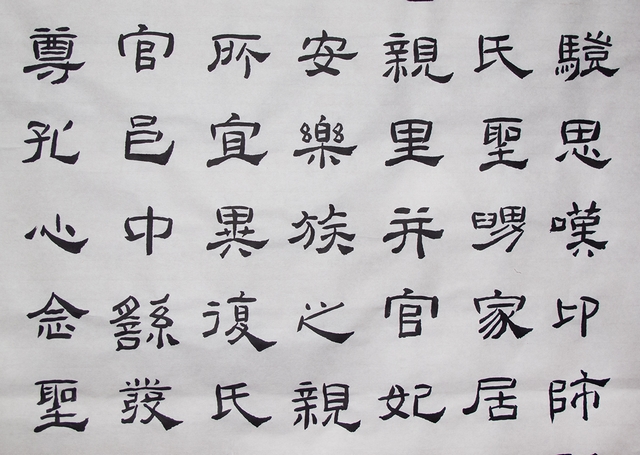 思嘆卬師
氏聖舅家居
親里并官妃
安樂族之親
所宜異復氏
官邑中繇發
尊孔心念聖